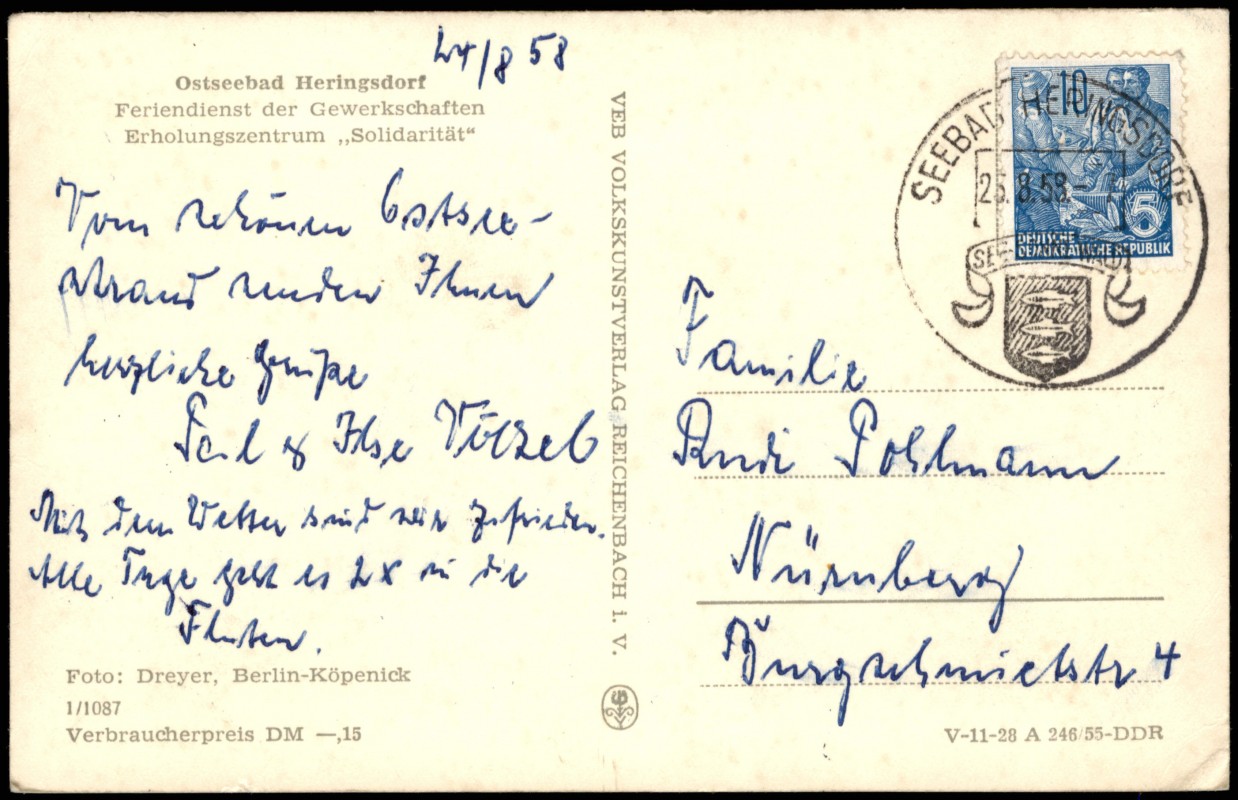 24/8 58
Ostseebad Heringsdorf
Feriendienst der Gewerkschaften
Erholungszentrum „Solidarität“
Vom schönen Ostsee-
strand senden Ihnen
herzliche Grüße
& Ilse
Mit dem Wetter sind wir zufrieden.
Alle Tage geht es 2x in die
Fluten.
Foto: Dreyer, Berlin-Köpenick
1/1087
Verbraucherpreis DM —,15
VEB VOLKSKUNSTVERLAG REICHENBACH i. V.
SEEBAD HERINGSDORF
25.8.58.-
10
5
DEUTSCHE
DEMOKRATISCHE REPUBLIK
Familie
Rudi Pohlmann
Nürnberg
Burgschmietstr 4
V-11-28 A 246/55-DDR